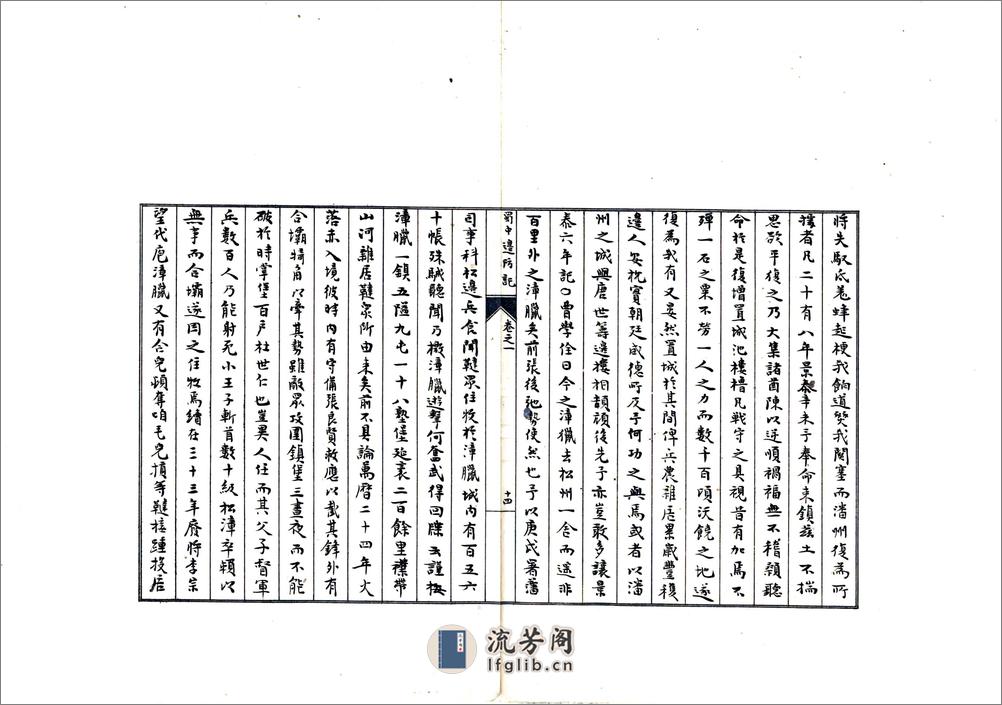 將失馭底卷蜂起梗我餉道熒我関塞而潘州復為所
擾者凡二十有八年景泰辛未予奉命来鎮兹土不揣
思欲平復之乃大集諸酋陳以逆順禍福無不稽顙聽
命於是復增置城池樓櫓凡戰守之具視昔有加焉不
殫一石之粟不勞一人之力而數十百頃沃饒之地遂
復為我有又晏然置城於其間俾兵農雜居累歲豐稔
邊人安枕實朝廷威德所及予何功之與焉或者以潘
州之城與唐世籌邊樓相頡頏後先予亦豈敢多讓景
泰六年記○曹學佺曰今之漳臘去松州一舍而遙非
百里外之漳臘矣前張後弛勢使然也予以庚戌署藩
蜀中邊防記
卷之一
十四
司事科松邊兵食聞韃眾住牧於漳臘城内有百五六
十帳殊駴聽聞乃檄漳臘遊擊何奮武得回牒云謹按
漳臘一鎮五隘九屯一十八墊堡延袤二百餘里襟帶
山河雜居韃眾所由来矣前不具論萬曆二十四年火
落赤入境彼時内有守備張良賢救應以截其鋒外有
合壩犄角以牽其勢雖敵眾攻圍鎮堡三晝夜而不能
破於時掌堡百戶杜世仁也豈異人任而其父子督軍
兵數百人乃能射死小王子斬首數十級松漳卒賴以
無事而合壩遂因之住牧焉續在三十三年廢將李宗
望代庖漳臘又有合兒頓奪咱毛兒損等韃接踵投居
流芳阁
lfglib.cn